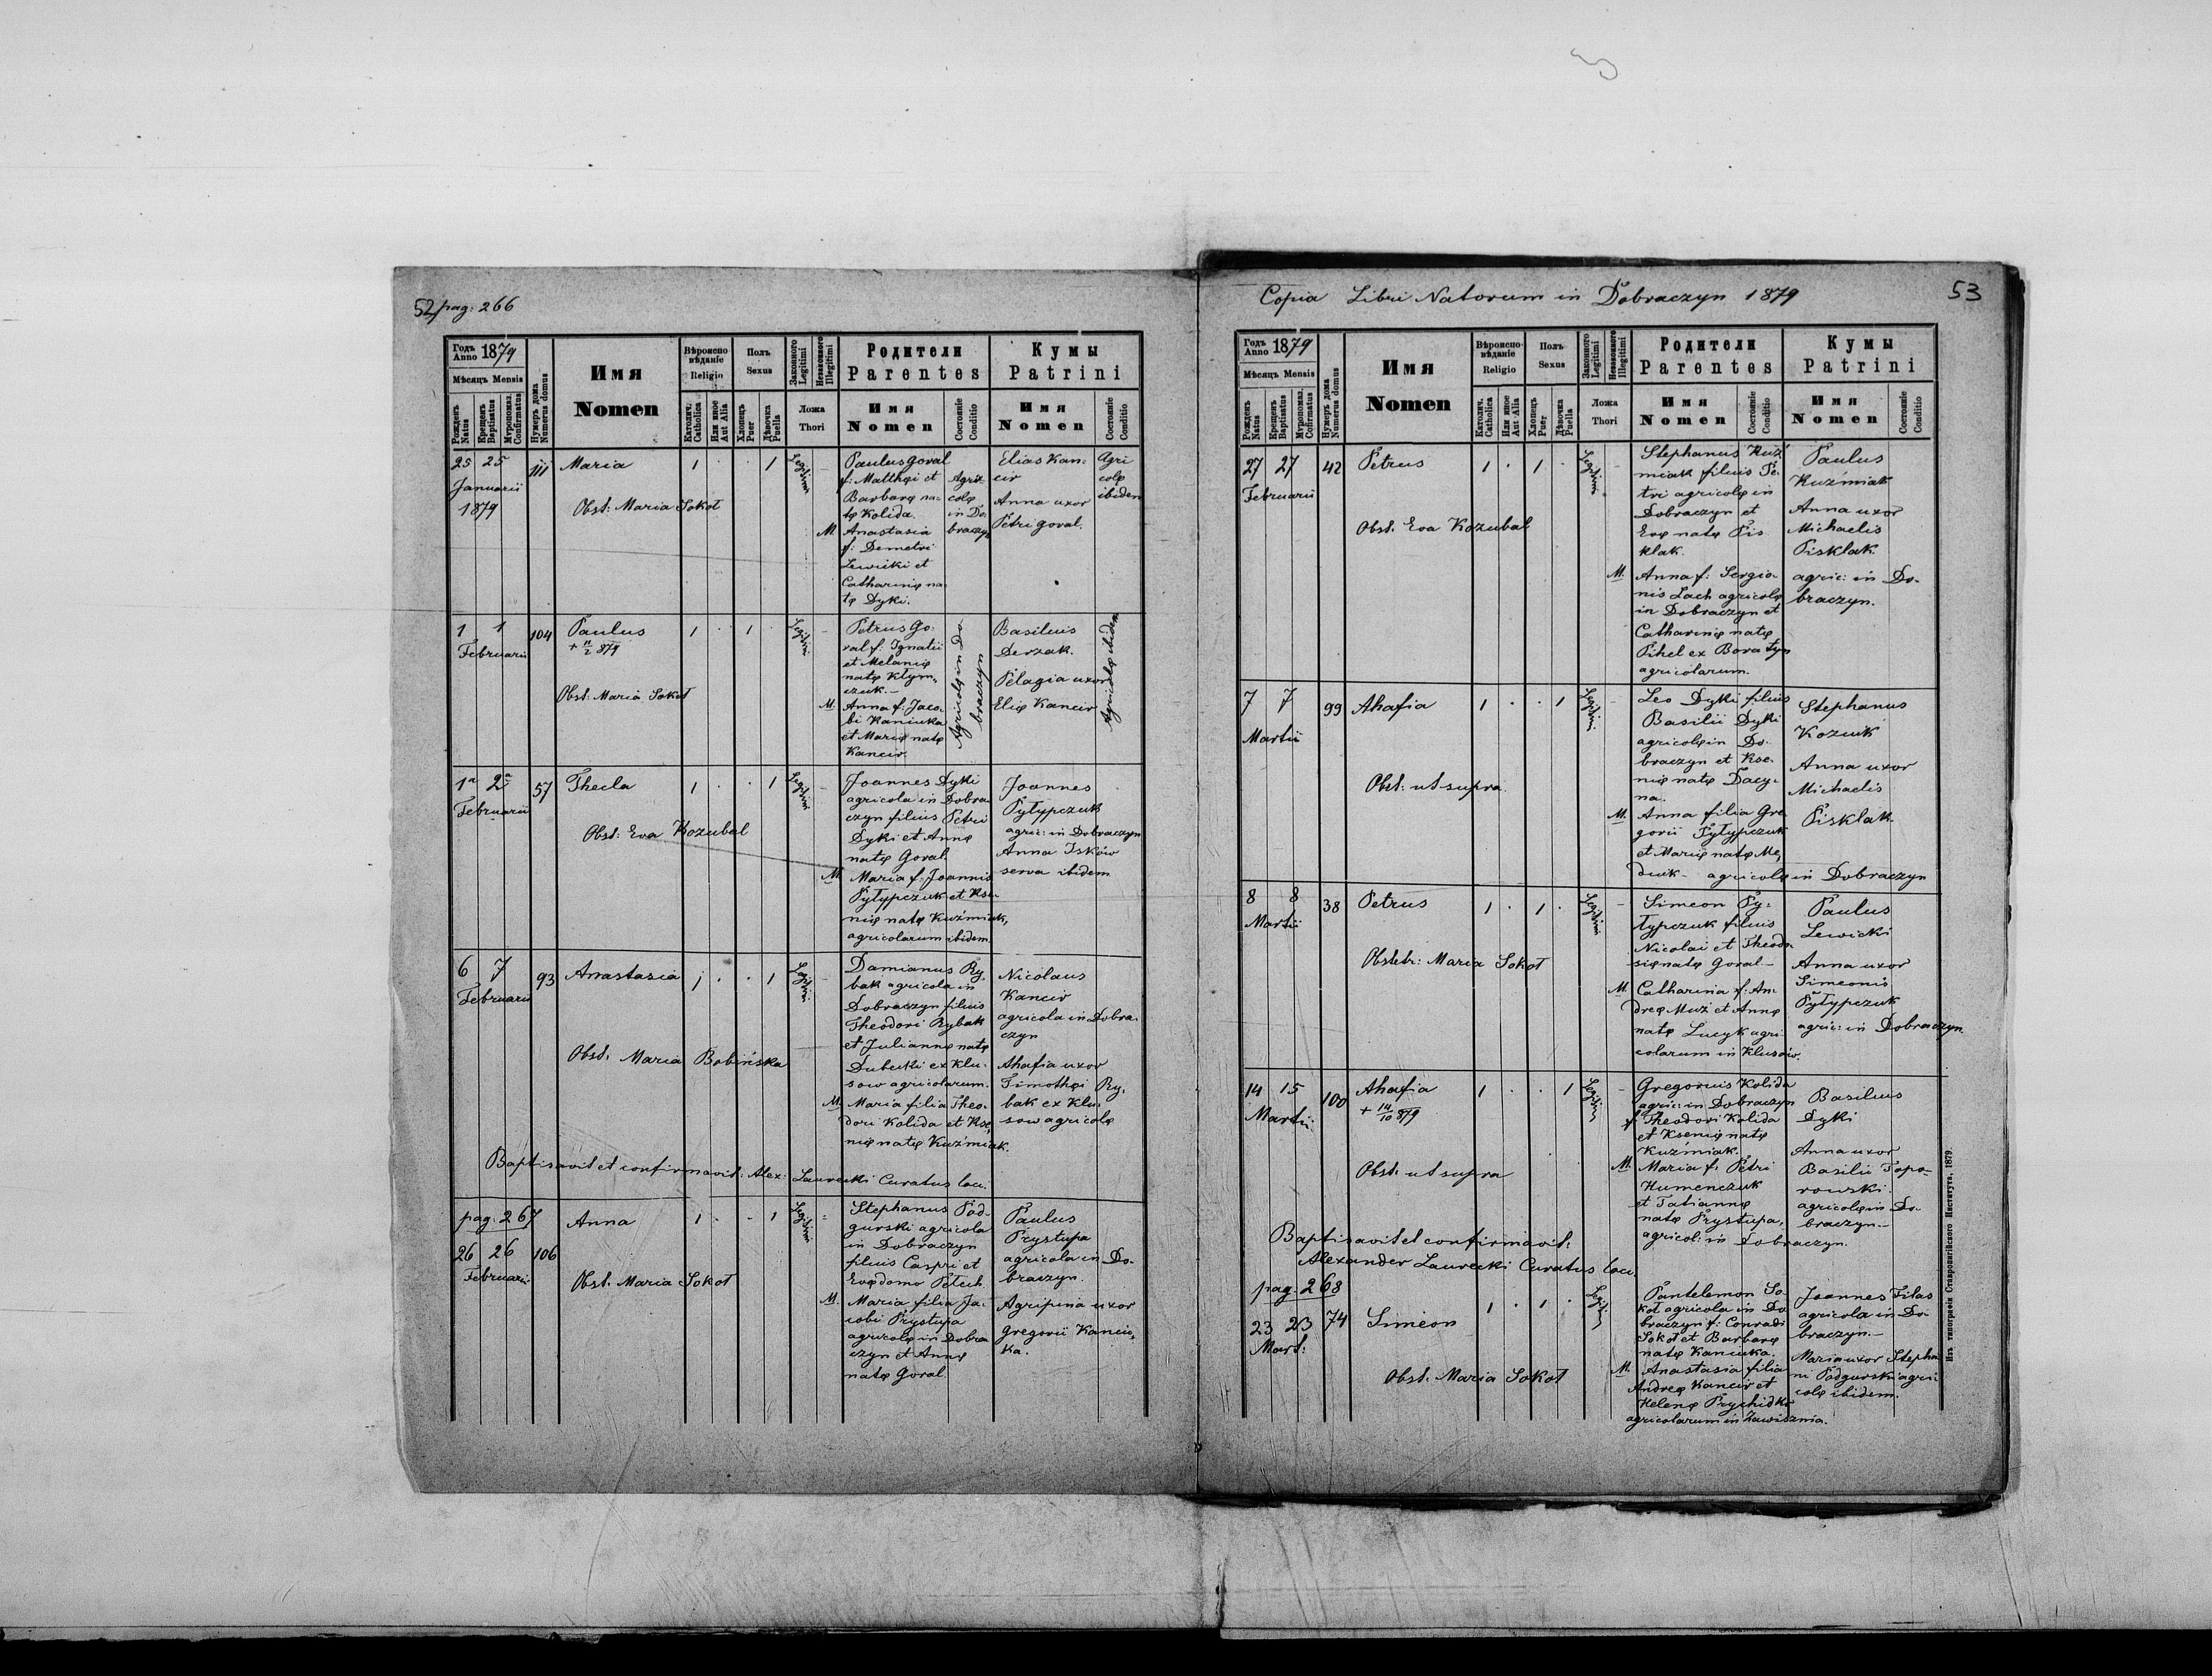 52 pag: 266
Годъ Anno 1879
Мѣсяцъ Mensis
Рожденъ Natus
Крещенъ Baptisatus
Муропомаз. Confirmatus
Нумеръ дома Numerus domus
Имя
Nomen
Вѣроиспо-
вѣданіе
Religio
Католич. Catholica
Или иное Aut Alia
Полъ
Sexus
Хлопецъ Puer
Дѣвочка Puella
Законного Legitimi
Незаконного Illegitimi
Ложа
Thori
Родители
Parentes
Имя
Nomen
Состояніе Conditio
Кумы
Patrini
Имя
Nomen
Состояніе Conditio
25 25
Januarii
1879
111
Maria
Obst: Maria Sokoł
1 · · 1
Legitimi
Paulus Goral
f: Matthęi et
Barbarę na-
tę Kolida.
M. Anastasia
f: Demetri
Lewicki et
Catharinę na-
tę Dyki.
Agri-
colę
in Do-
braczyn
Elias Kan-
cir
Anna uxor
Petri Goral.
Agri
colę
ibidem
1 1
Februarii
104
Paulus
+ 11/2 879
Obst: Maria Sokoł
1 · 1 ·
Legitimi
Petrus Go-
ral f: Ignatii
et Melanię
natę Kłym-
czuk.-
M. Anna f: Jaco-
bi Kaniuka
et Marię natę
Kancir.
Agricolę in Do
braczyn
Basilius
Derzak.
Pelagia uxor
Elię Kancir
Agricolę ibidem
1a 2a
Februarii
57
Thecla
Obst: Eva Kozubal
1 · · 1
Legitimi
Joannes Dyki
agricola in Dobra
czyn filius Petri
Dyki et Annę
natę Goral.
M. Maria f: Joannis
Pyłypczuk et Kse-
nię natę Kuźmiak,
agricolarum ibidem.
Joannes
Pyłypczuk
agric: in Dobraczyn
Anna Iśków
serva ibidem
6 7
Februarii
93
Anastasia
Obst. Maria Bobińska
1 · · 1
Legitimi
Damianus Ry-
bak agricola in
Dobraczyn filius
Theodori Rybak
et Juliannę natę
Dubecki ex Klu-
sow agricolarum.
M. Maria filia Theo-
dori Kolida et Kse-
nię natę Kuźmiak.
Nicolaus
Kancir
agricola in Dobra-
czyn
Ahafia uxor
Timothęi Ry-
bak ex Klu-
sow agricolę
Baptisavit et confirmavit: Alex: Laurecki Curatus loci.
pag: 267
26 26
Februarii
106
Anna
Obst. Maria Sokoł
1 · · 1
Legitimi
Stephanus Pod-
gurski agricola
in Dobraczyn
filius Caspri et
Evę domo Petuch
M. Maria filia Ja-
cobi Prystupa
agricolę in Dobra
czyn et Annę
natę Goral.
Paulus
Prystupa
agricola in Do-
braczyn.
Agripina uxor
Gregorii Kaniu-
ka.
Copia Libri Natorum in Dobraczyn 1879
53
Годъ Anno 1879
Мѣсяцъ Mensis
Рожденъ Natus
Крещенъ Baptisatus
Муропомаз. Confirmatus
Нумеръ дома Numerus domus
Имя
Nomen
Вѣроиспо-
вѣданіе
Religio
Католич. Catholica
Или иное Aut Alia
Полъ
Sexus
Хлопецъ Puer
Дѣвочка Puella
Законного Legitimi
Незаконного Illegitimi
Ложа
Thori
Родители
Parentes
Имя
Nomen
Состояніе Conditio
Кумы
Patrini
Имя
Nomen
Состояніе Conditio
27 27
Februarii
42
Petrus
Obst. Eva Kozubal
1 · 1 ·
Legitimi
Stephanus Kuź
miak filius Pe-
tri agricolę in
Dobraczyn et
Evę natę Pis
klak.
M. Anna f: Sergio-
nis Lach agricolę
in Dobraczyn et
Catharinę natę
Pihel ex Boratyn
agricolarum.
Paulus
Kuźmiak
Anna uxor
Michaelis
Pisklak
agric: in Do-
braczyn.
7 7
Martii
99
Ahafia
Obst: ut supra.
1 · · 1
Legitimi
Leo Dyki filius
Basilii Dyki
agricolę in Do-
braczyn et Kse-
nię natę Dacy-
na.
M. Anna filia Gre
gorii Pyłypczuk
et Marię natę Me-
duik - agricolę in Dobraczyn
Stephanus
Koziuk
Anna uxor
Michaelis
Pisklak
8 8
Martii
38
Petrus
Obstetr: Maria Sokoł
1 · 1 ·
Legitimi
Simeon Py-
łypczuk filius
Nicolai et Theodo
się natę Goral-
M. Catharina f: An-
dreę Muz et Annę
natę Lucyk agri
colarum in Klusów.
Paulus
Lewicki
Anna uxor
Simeonis
Pyłypczuk
agric: in Dobraczyn.
14 15
Martii
100
Ahafia
+ 14/10 879
Obst: ut supra
1 · · 1
Legitimi
Gregorius Kolida
agric: in Dobraczyn
f Theodori Kolida
et Ksenię natę
Kuźmiak.
M. Maria f: Petri
Humenczuk
et Tatiannę
natę Prystupa,
agricol: in Dobraczyn.
Basilius
Dyki
Anna uxor
Basilii Topo-
rowski
agricolę in Do-
braczyn.-
Baptisavit et confirmavit:
Alexander Laurecki Curatus loci.
pag: 268
23 23
Mart:
74
Simeon
Obst. Maria Sokoł
1 · 1 ·
Legitimi
Pantelemon So-
koł agricola in Do
braczyn f: Conradi
Sokoł et Barbarę
natę Kaniuka.
M. Anastasia filia
Andreę Kancir et
Helenę Prychidko
agricolarum in Zawisznia.
Joannes Filas
agricola in Do-
braczyn.-
Maria uxor Stepha
ni Podgurski agri-
colę ibidem.
Изъ типографіи Ставропигійского Института, 1879.